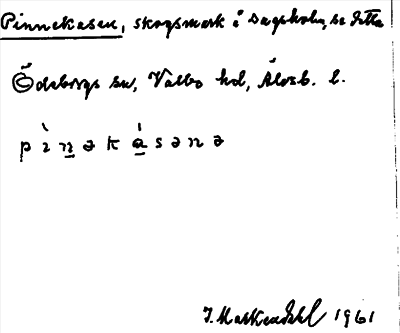 Pinnekasen, skogsmark i Dagsholm, se detta
Ödeborgs sn, Valbo hd, Älvsb. l.
pìn̲əká̲sənə
1961